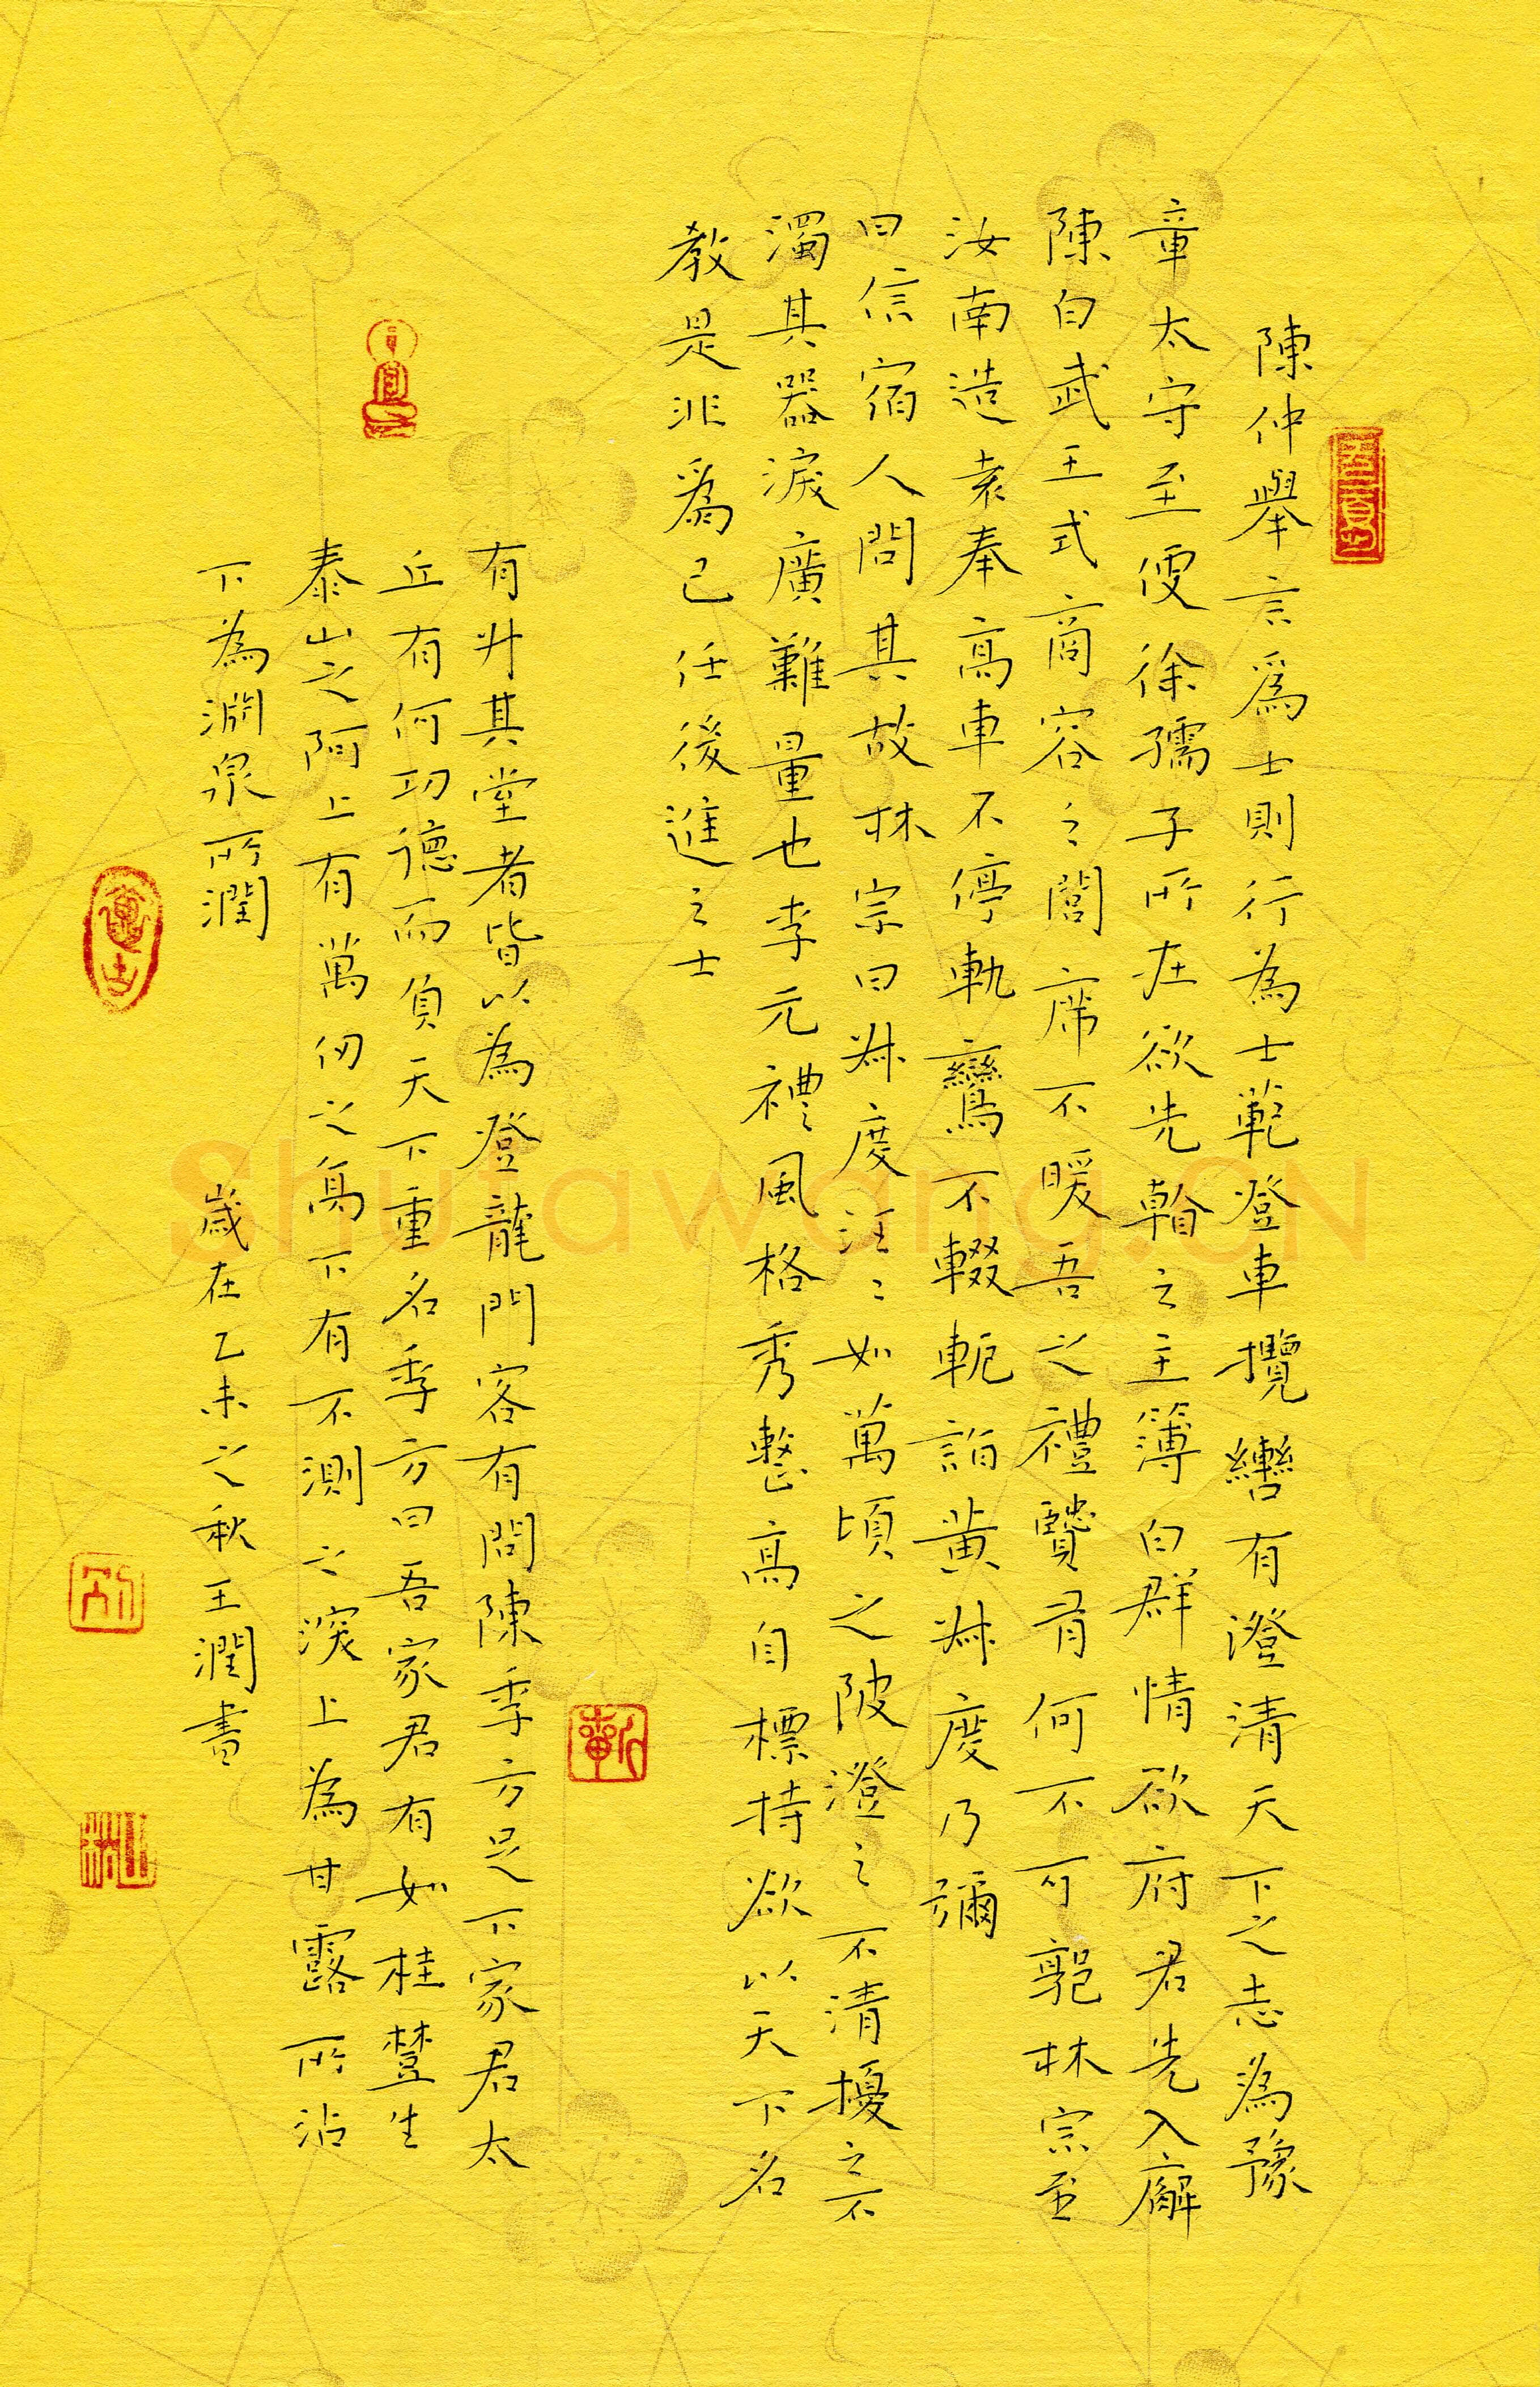 陳仲舉言爲士則行為士範登車攬轡有澄清天下之志為豫
章太守至便徐孺子所在欲先㸔之主簿白群情欲府君先入廨
陳白武王式商容之閭席不暖吾之禮賢有何不可郭林宗至
汝南造袁奉高車不停軌鸞不輟軛詣黃叔度乃彌
曰信宿人問其故林宗曰叔度汪〻如萬頃之陂澄之不清擾之不
濁其器深廣難量也李元禮風格秀整高自標持欲以天下名
教是非爲己任後進之士
有升其堂者皆以為登龍門客有問陳季方足下家君太
丘有何功德而負天下重名季方曰吾家君有如桂樹生
泰山之阿上有萬仞之高下有不測之深上為甘露所沾
下為淵泉所潤
歲在乙未之秋王潤書
Shufawang.CN